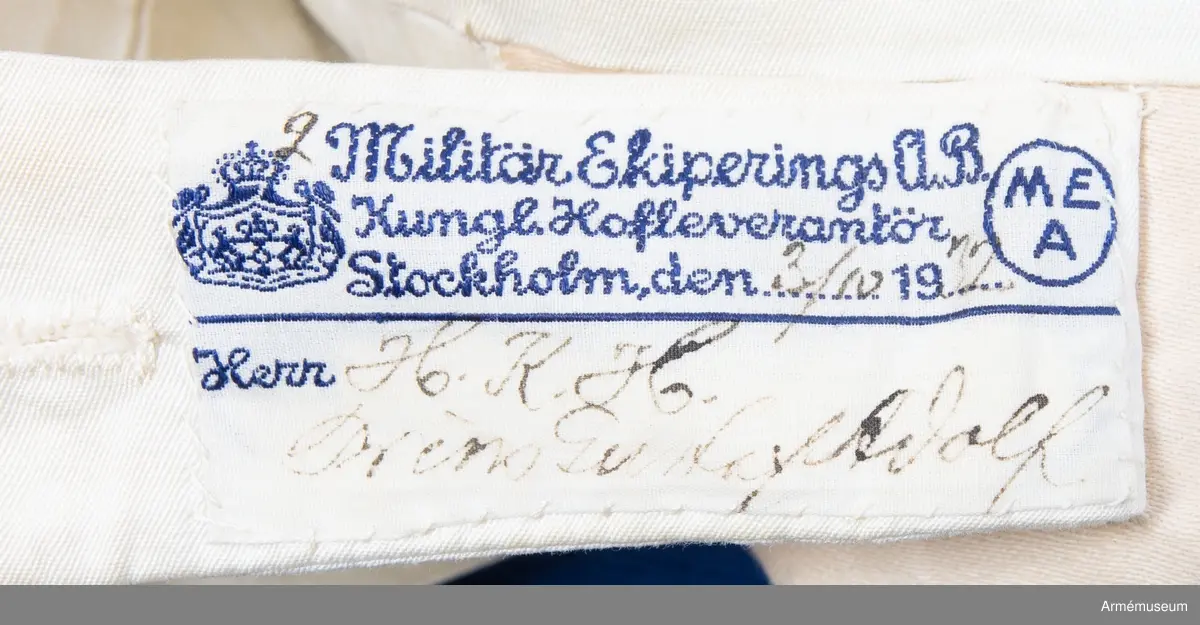 2 Militär Ekiperings A.B.
Kungl. Hofleverantör
Stockholm, den 3/10 1932
M E
A
Herr H. K. H.
Prins Gustaf Adolf
Armémuseum